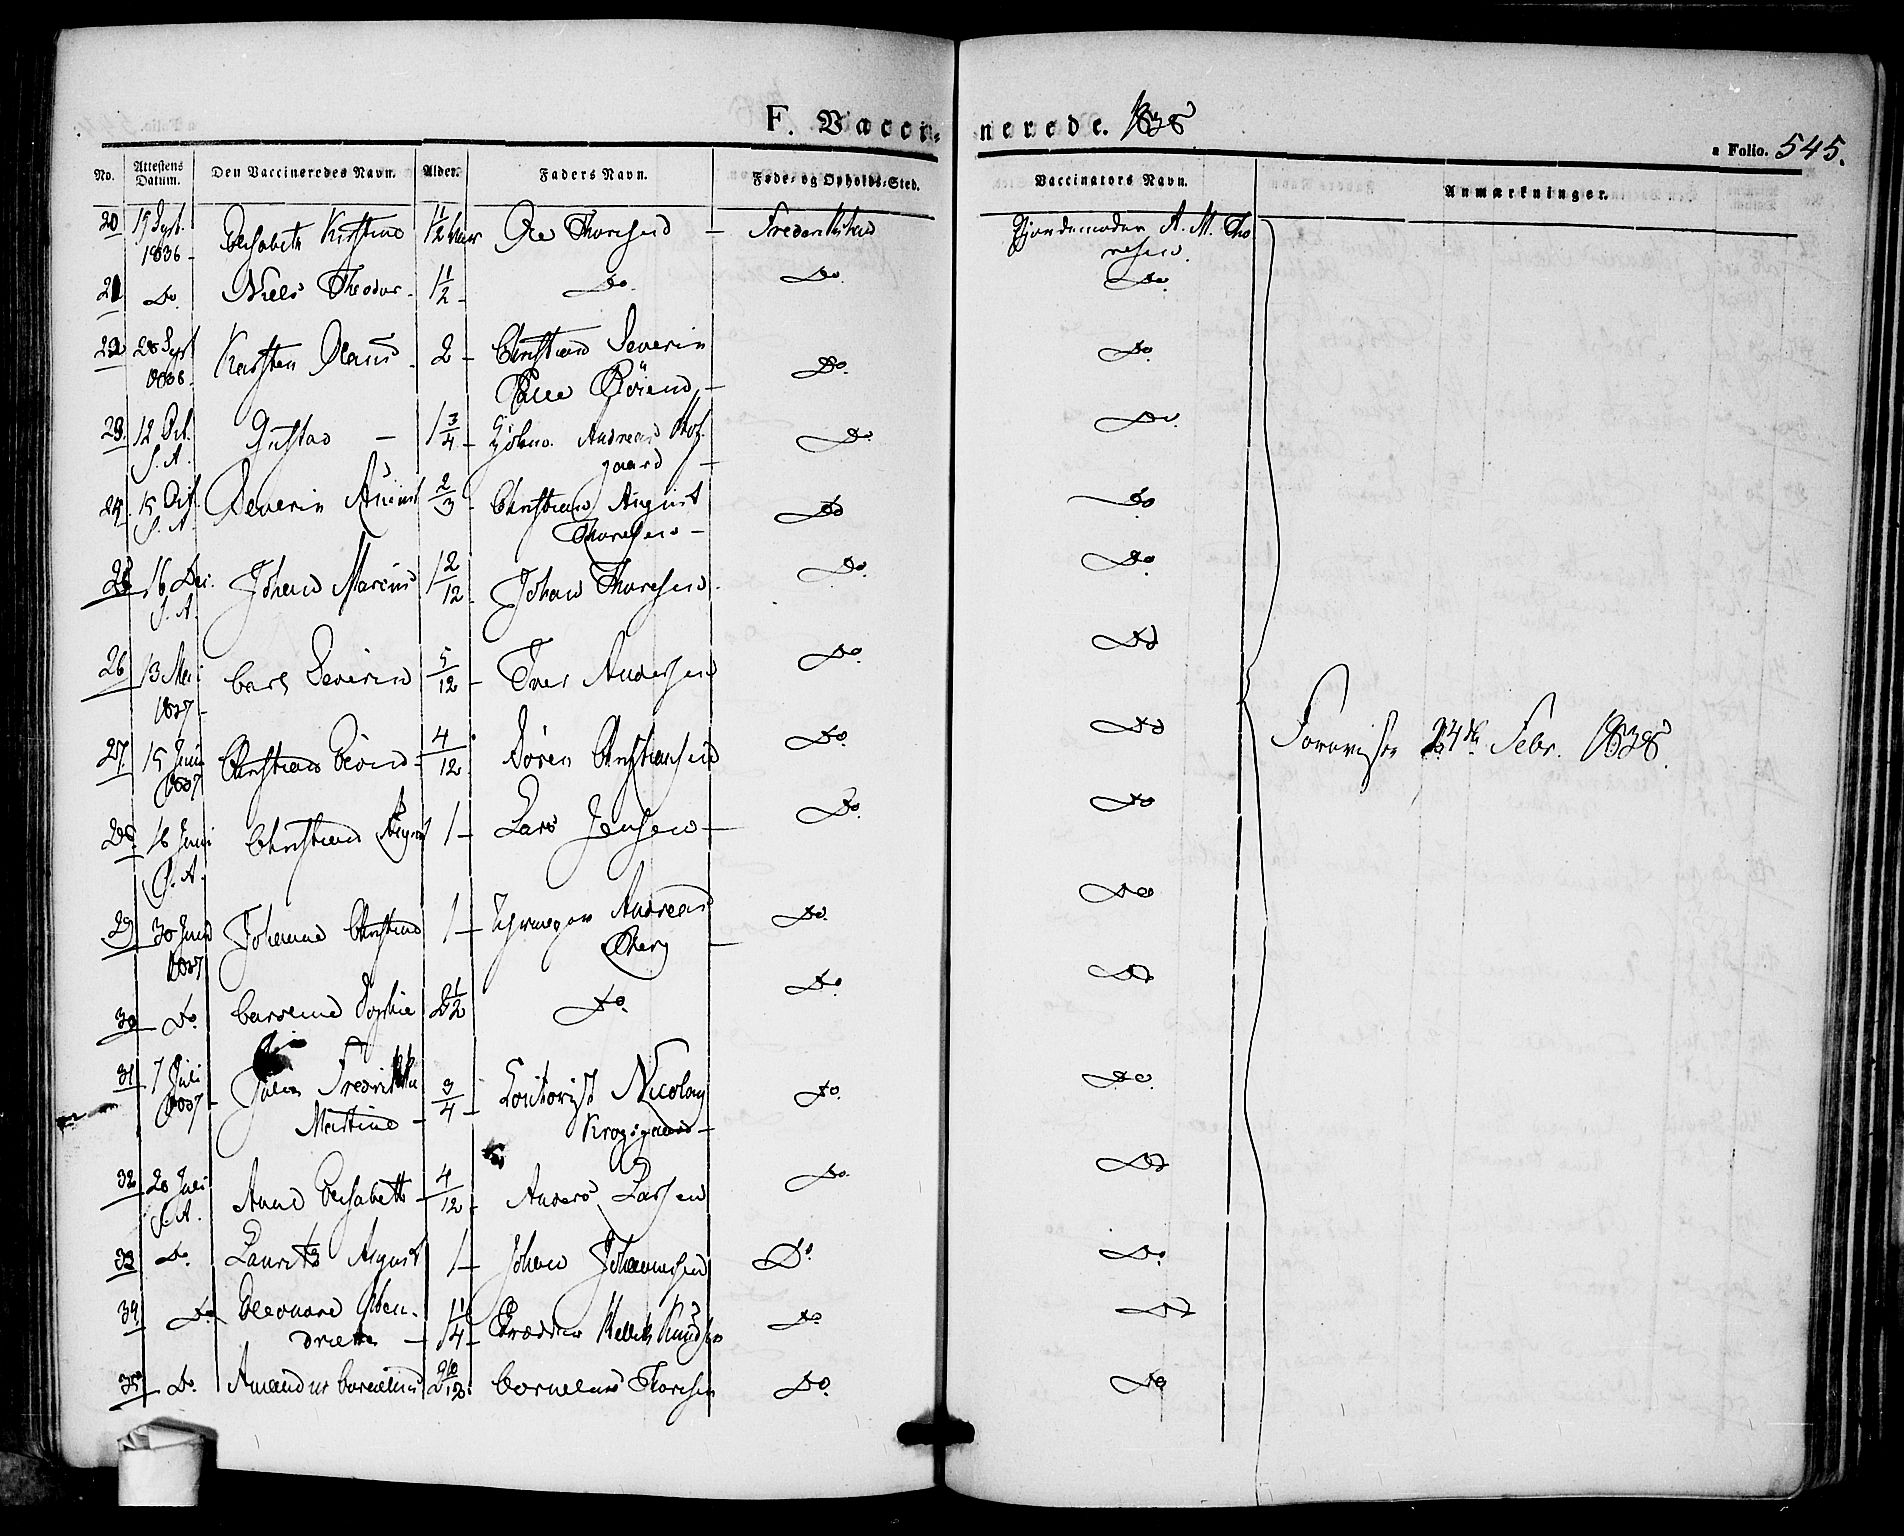 F. Vacci- nerede. 1838
a Folio. 545.
No. Attestens Datum. Den Vaccineredes Navn. Alder. Faders Navn. Føde- og Opholds-Sted. Vaccinators Navn. Anmærkninger.
20 15 Sept. 1836 Elisabeth Kirstine 1 1/2 Aar Ole Thoresen – Frederikshald Gjordemoder A. M. Tho
resen.
21 Do. Niels Theodor 1 1/2 Do. Do. Do.
22 28 Sept 1836. Karsten Olaus 2 – Christian Severin
Do. Do.
23. 12 Oct. Gustav – 1 3/4 – Johan Andreas Hof
S. A. gaard – Do. Do.
24. 15 Oct. Severin August 2/3 – Christian August
S. A. Thoresen – Do Do
25 16 Dec. Johan Marius 1 2/12 Johan Thoresen. Do. Do.
S. A.
26 13 Mai Carl Severin 5/12 – Iver Andersen Do. Do
1837 –
27. 15 Juni Christian 4/12 Søren Christiansen Do. Do
1837
Foreviist 24de Febr. 1838.
28 16 Juni Christian August 1 – Lars Jensen – Do. Do
S. A.
29 30 Juni Johanne Christine 1 – Andreas
1837 Berg – Do. Do
30 Do. Sophie 2 1/2 Do. Do. Do
31 7 Juli Julie Fredrikke 3/4 – Nicolay
1837 – Martine – Krogsgaard – Do. Do.
32 20 Juli Anne Elisabeth – 4/12 Anders Larsen Do. Do
S. A.
33 Do. Laurits August 1 – Johan Johannesen Do. Do.
34 Do. Eleonore Hen-
driette – 1 1/4 – Knudsen Do. Do
35 – Do. 2 10/12 Cornelius Thoresen Do. Do